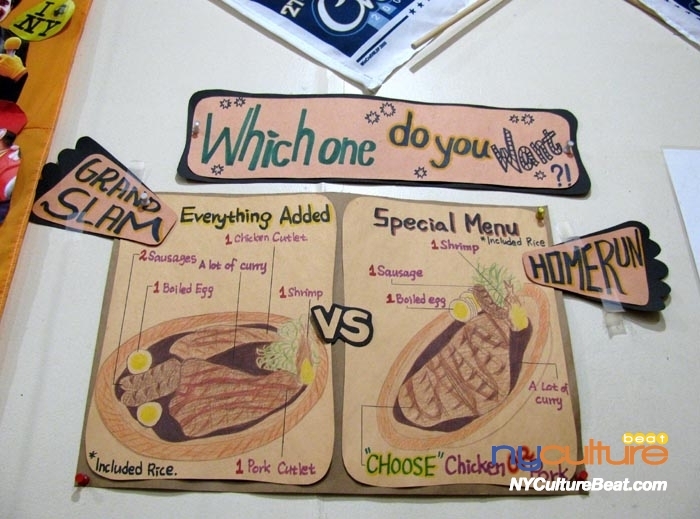 I NY
Which one do you want ?!
GRAND
SLAM
Everything Added
1 Chicken Cutlet
2 Sausages
A lot of curry
1 Boiled Egg
1 Shrimp
*Included Rice.
1 Pork Cutlet
VS
Special Menu
*Included Rice
1 Shrimp
1 Sausage
1 Boiled egg
A Lot of
curry
"CHOOSE" Chicken OR Pork
HOMERUN
nyculture beat
NYCultureBeat.com